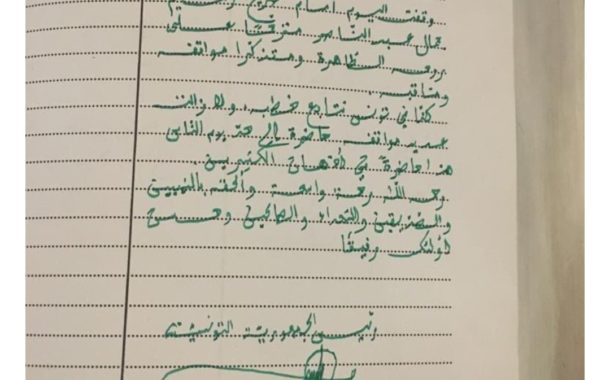 وقفت اليوم أمام ضريح
جمال عبد الناصر مترحما على
روحه الطاهرة ومتذكرا مواقفه
ومناقبه.
كنا في تونس نتابع خطبه، ولا زالت
عديد مواقفه حاضرة إلى حد يوم الناس
هذا حاضرة في أذهان الكثيرين.
رحمه الله رحمة واسعة وألحقه بالنبيين
والصديقين والشهداء والصالحين وحسن
أولئك رفيقا
رئيس الجمهورية التونسية